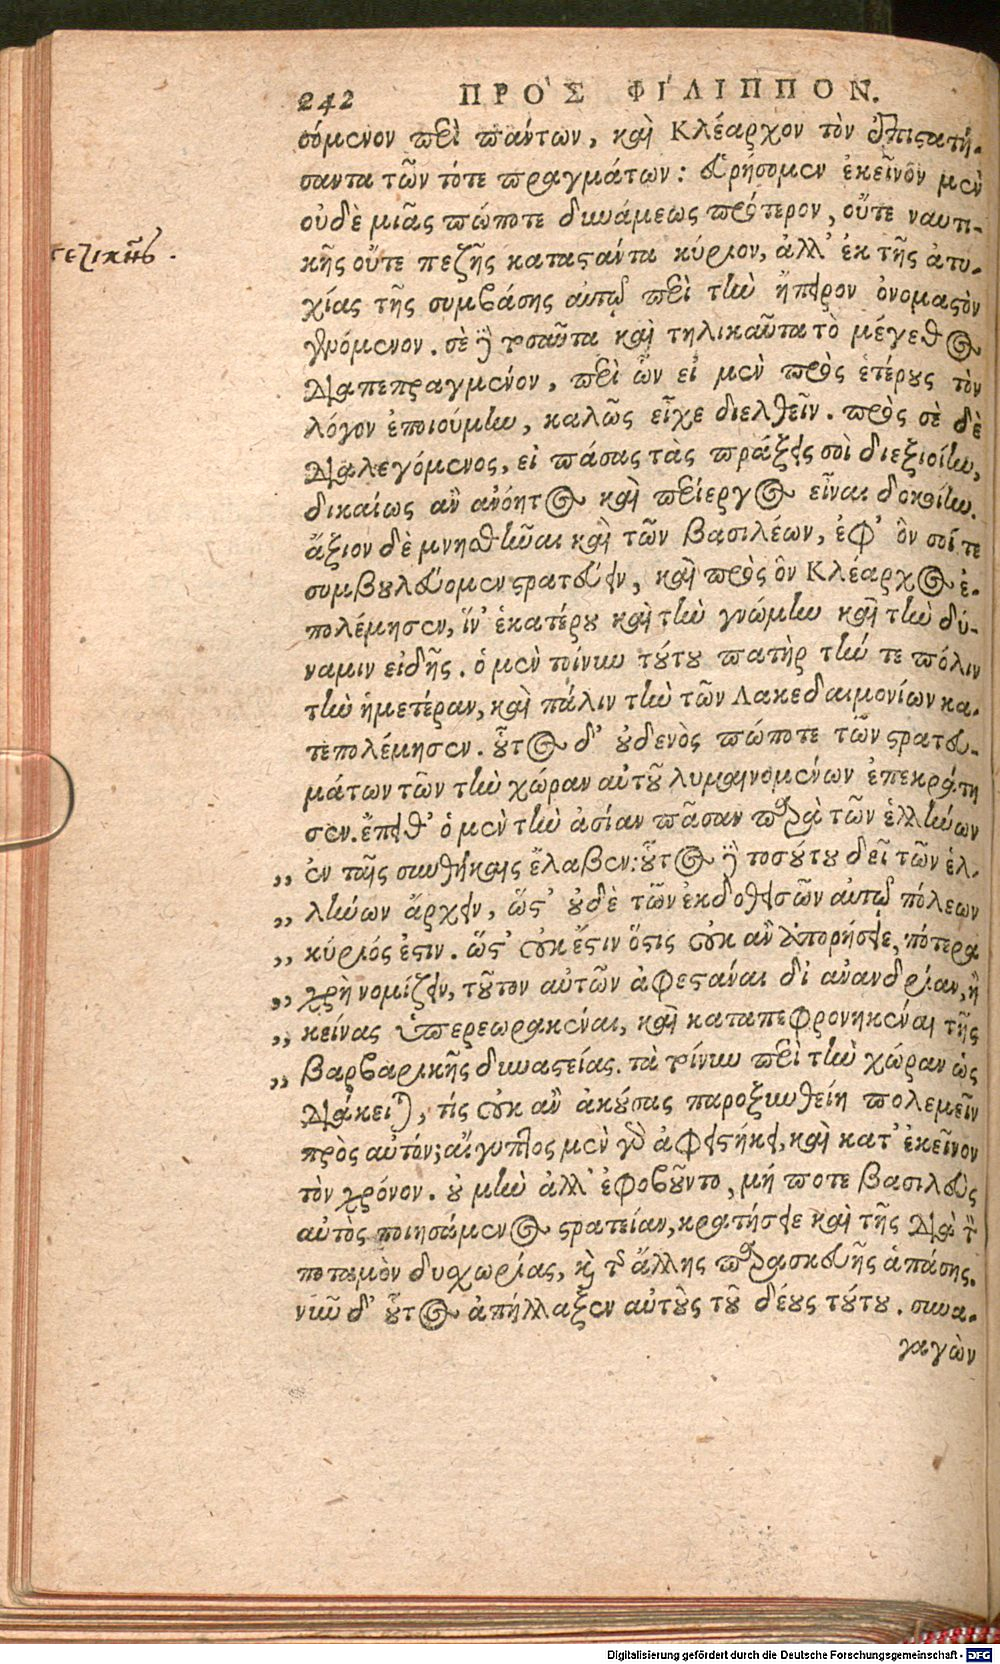 242 ΠΡΟ῀Σ ΦΙ´ΛΙΠΠΟΝ.
σόμενον περὶ πάντων, καὶ Κλέαρχον τὸν ἐπιστατή-
σαντα τῶν τότε πραγμάτων: εὑρήσομεν ἐκεῖνον μὲν
οὐδὲ μιᾶς πώποτε δυνάμεως πρότερον, οὔτε ναυτι-
κῆς οὔτε πεζῆς καταστάντα κύριον, ἀλλ' ἐκ τῆς ἀτυ-
χίας τῆς συμβάσης αὐτῷ περὶ τὴν ἤπειρον ὀνομαστὸν
γενόμενον. σὲ δὲ τοσαῦτα καὶ τηλικαῦτα τὸ μέγεθος
διαπεπραγμένον, περὶ ὧν εἰ μὲν πρὸς ἑτέρους τὸν
λόγον ἐποιούμην, καλῶς εἶχε διελθεῖν. πρὸς σὲ δὲ
διαλεγόμενος, εἰ πάσας τὰς πράξεις σοὶ διεξιοίην,
δικαίως ἂν ἀνόητος καὶ περίεργος εἶναι δοκοίην.
ἄξιον δὲ μνησθῆναι καὶ τῶν βασιλέων, ἐφ' ὃν σοί τε
συμβουλεύομεν στρατεύειν, καὶ πρὸς ὃν Κλέαρχος ἐ-
πολέμησεν, ἵν' ἑκατέρου καὶ τὴν γνώμην καὶ τὴν δύ-
ναμιν εἰδῇς. ὁ μὲν τοίνυν τούτου πατὴρ τήν τε πόλιν
τὴν ἡμετέραν, καὶ πάλιν τὴν τῶν Λακεδαιμονίων κα-
τεπολέμησεν. οὗτος δ' οὐδενὸς πώποτε τῶν στρατευ-
μάτων τῶν τὴν χώραν αὐτοῦ λυμαινομένων ἐπεκράτη
σεν. ἔπειθ' ὁ μὲν τὴν ἀσίαν πᾶσαν παρὰ τῶν ἑλλήνων
,, ἐν ταῖς συνθήκαις ἔλαβεν: οὗτος δὲ τοσούτου δεῖ τῶν ἑλ-
,, λήνων ἄρχειν, ὥστ' οὐδὲ τῶν ἐκδοθεισῶν αὐτῷ πόλεων
,, κύριός ἐστιν. ὥστ' οὐκ ἔστιν ὅστις οὐκ ἂν ἀπορήσειε, πότερα
,, χρὴ νομίζειν, τοῦτον αὐτῶν ἀφεστάναι δι' ἀνανδρίαν, ἢ
,, κείνας ὑπερεωρακέναι, καὶ καταπεφρονηκέναι τῆς
,, βαρβαρικῆς δυναστείας. τὰ τοίνυν περὶ τὴν χώραν ὡς
διάκειται, τίς οὐκ ἂν ἀκούσας παροξυνθείη πολεμεῖν
πρὸς αὐτόν; αἴγυπτος μὲν γὰρ ἀφειστήκει, καὶ κατ' ἐκεῖνον
τὸν χρόνον. οὐ μὴν ἀλλ' ἐφοβοῦντο, μή ποτε βασιλεὺς
αὐτὸς ποιησάμενος στρατείαν, κρατήσειε καὶ τῆς διὰ τὸν
ποταμὸν δυχωρίας, καὶ τῆς ἄλλης παρασκευῆς ἁπάσης.
νῦν δ' οὗτος ἀπήλλαξεν αὐτοὺς τοῦ δέους τούτου. συνα-
γαγὼν
Digitalisierung gefördert durch die Deutsche Forschungsgemeinschaft - DFG